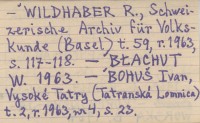 -"WILDHABER R., Schwei-
zerische Archiv für Volks-
kunde (Basel) t. 59, r. 1963,
s. 117-118. - "BŁACHUT
W. 1963. - "BOHUŠ Ivan,
Vysoké Tatry (Tatranská Lomnica)
t. 2, r. 1963, nr 4, s. 23.